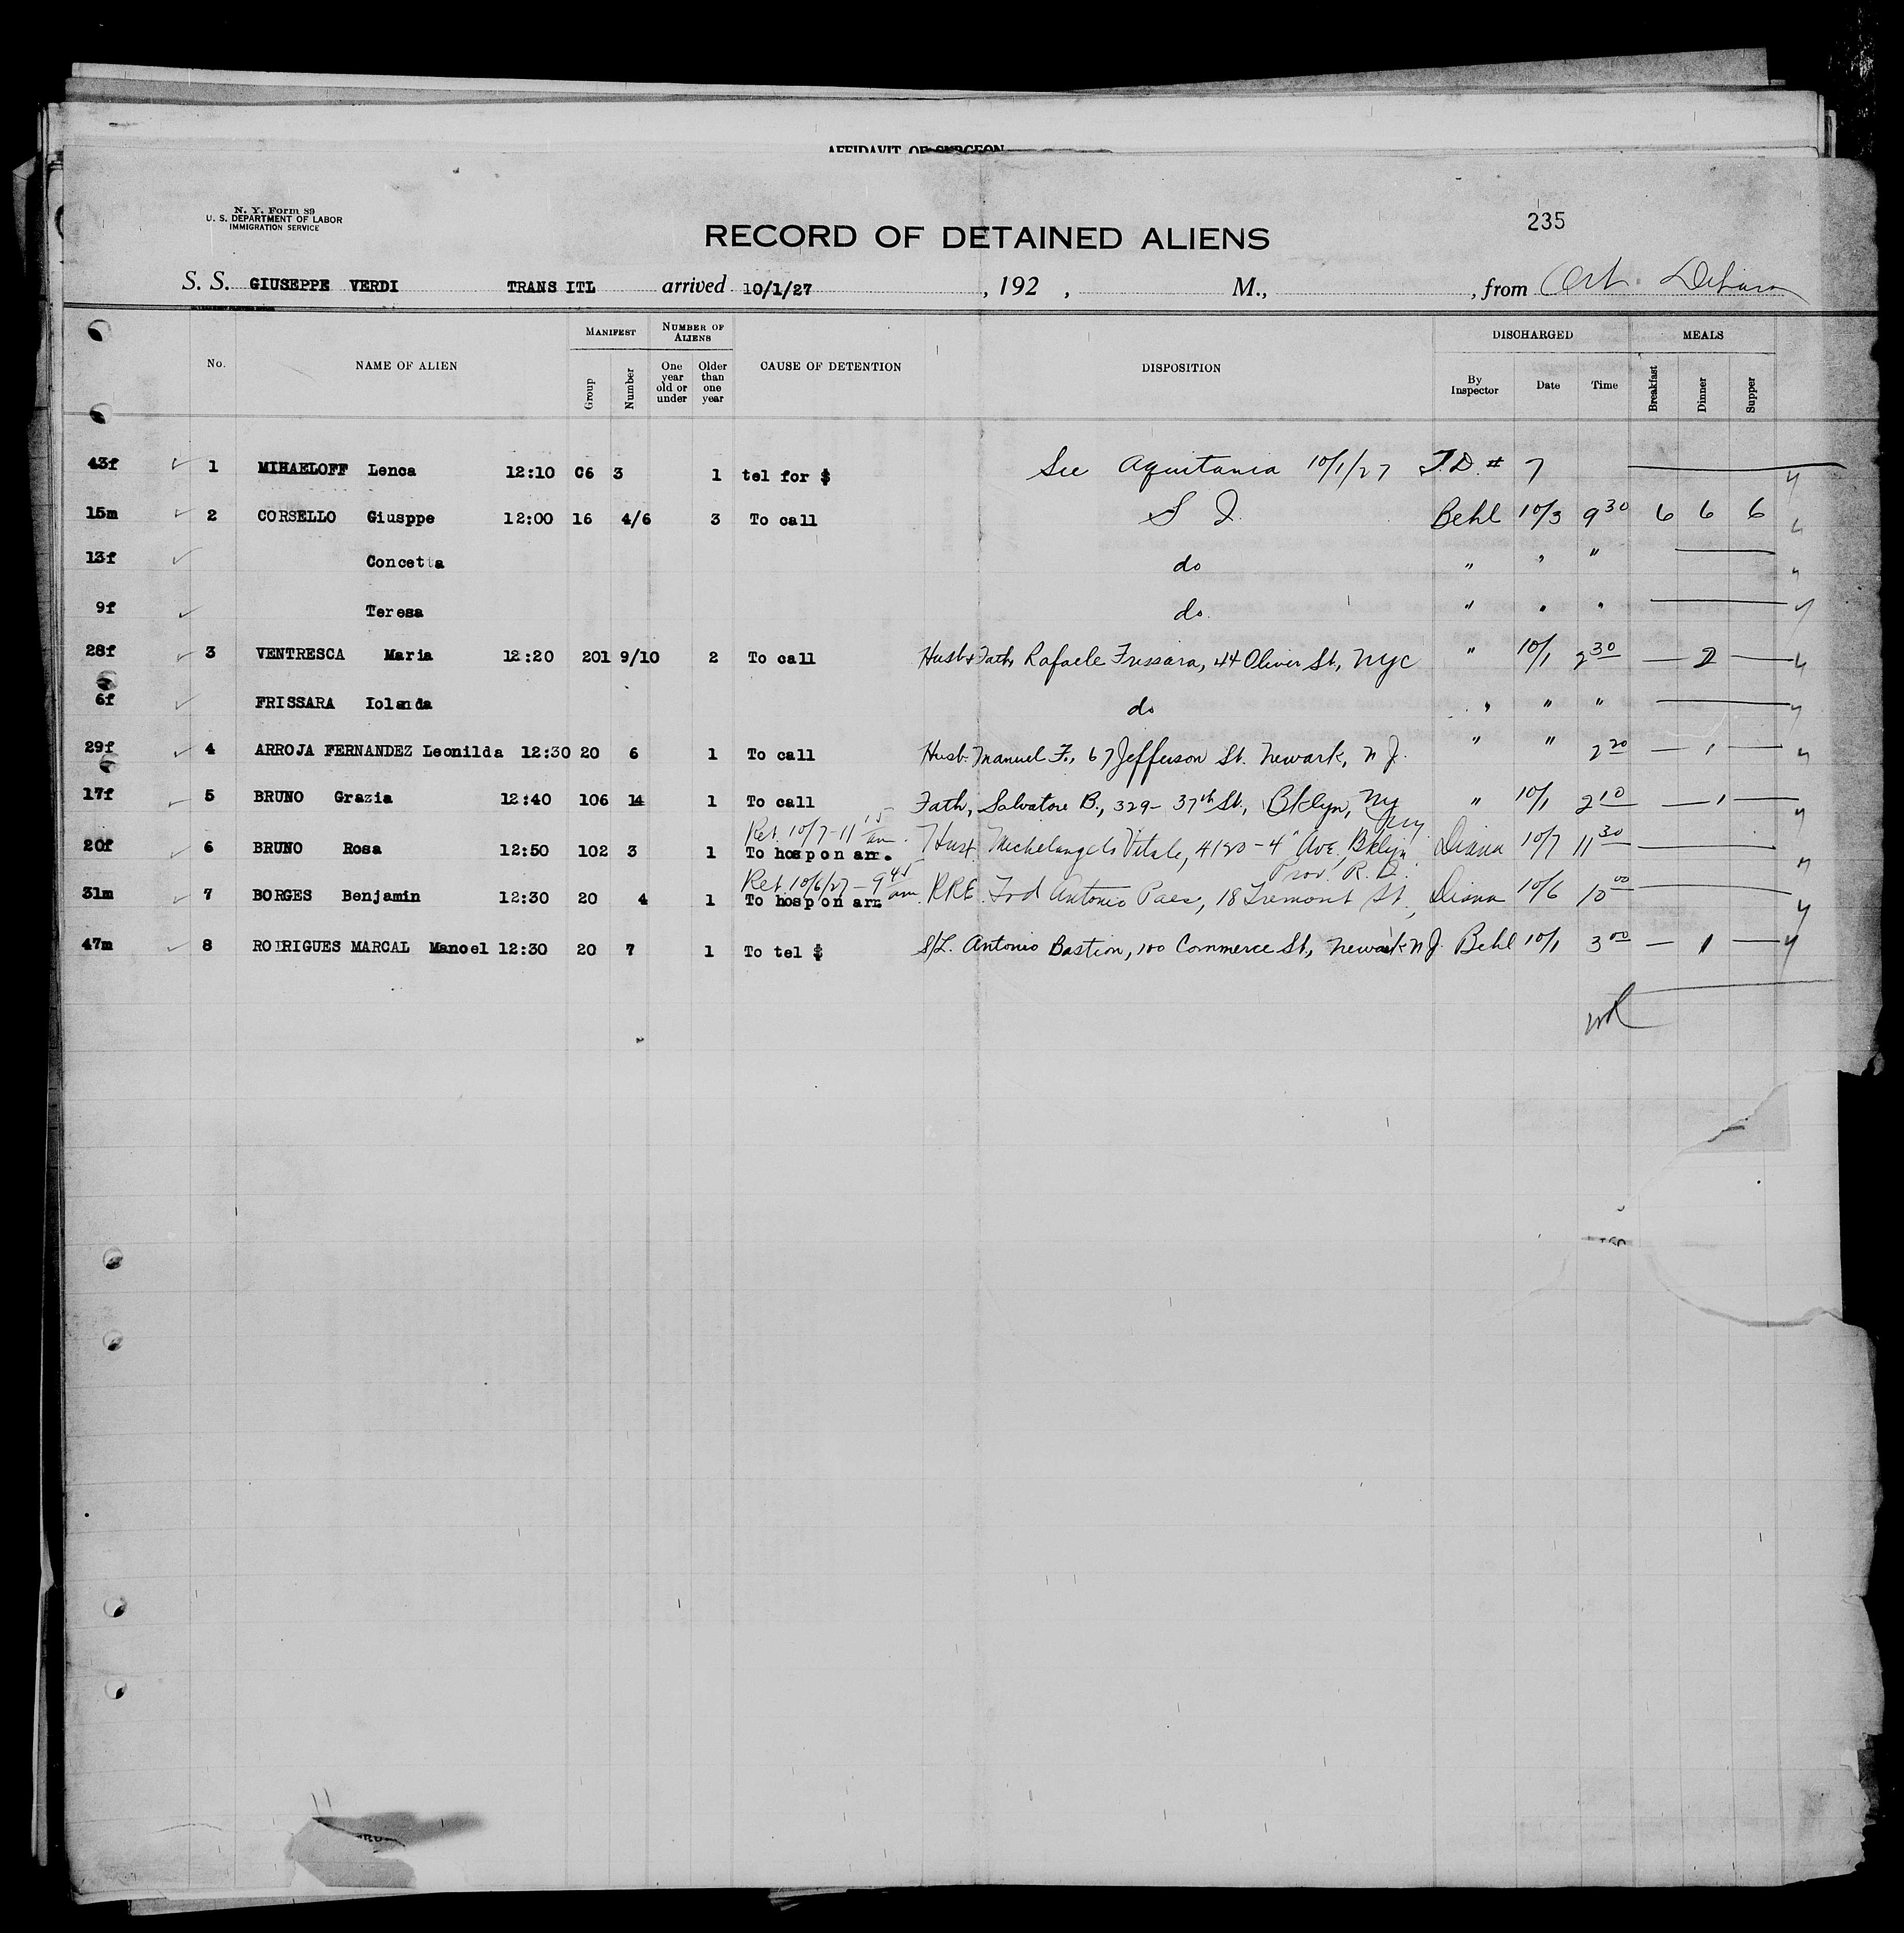 AFFIDAVIT OF SURGEON
N. Y. Form 89
U. S. DEPARTMENT OF LABOR
IMMIGRATION SERVICE
235
RECORD OF DETAINED ALIENS
S. S. GIUSEPPE VERDI TRANS ITL arrived 10/1/27 , 192 , M., , from
No. NAME OF ALIEN MANIFEST Group Number NUMBER OF ALIENS One year old or under Older than one year CAUSE OF DETENTION DISPOSITION DISCHARGED By Inspector Date Time MEALS Breakfast Dinner Supper
43f 1 MIHAELOFF Lenca 12:10 C6 3 1 tel for $ See Aquitania 10/1/27 T.D. # 7
15m 2 CORSELLO Giusppe 12:00 16 4/6 3 To call S I. Behl 10/3 9 30 6 6 6
13f Concetta do " " "
9f Teresa do. " " "
28f 3 VENTRESCA Maria 12:20 201 9/10 2 To call Husb & Fath, Rafaele Frissara, 44 Oliver St, NYC " 10/1 2 30 — 2 —
6f FRISSARA Iolanda do " " "
29f 4 ARROJA FERNANDEZ Leonilda 12:30 20 6 1 To call Husb. Manuel F., 67 Jefferson St. Newark, N J. " " 2 20 — 1 —
17f 5 BRUNO Grazia 12:40 106 14 1 To call Fath, Salvatore B., 329 - 37th St, Bklyn, NY " 10/1 2 10 — 1 —
Ret. 10/7 - 11 15 am.
20f 6 BRUNO Rosa 12:50 102 3 1 To hosp on arr. Husb Michelangelo Vitale, 4120 - 4" Ave, Bklyn NY Diana 10/7 11 30
Ret. 10/6/27 - 9 45 am. Prov. R. I.
31m 7 BORGES Benjamin 12:30 20 4 1 To hosp on arr. RRE. Frd Antonio Paes, 18 Tremont St., Diana 10/6 10 00
47m 8 RODRIGUES MARCAL Manoel 12:30 20 7 1 To tel $ S/L. Antonio Bastion, 100 Commerce St, Newark N J. Behl 10/1 3 00 — 1 —